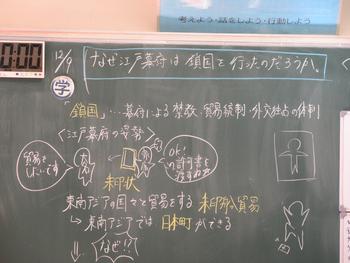 考えよう・話をしよう・行動しよう
0:00
12/9
なぜ江戸幕府は鎖国を行ったのだろうか。
学
「鎖国」…幕府による禁教・貿易統制・外交独占の体制
<江戸幕府の姿勢>
貿易をしたいです
OK!
許可書を渡すね
朱印状
東南アジアの国々と貿易をする 朱印船貿易
→東南アジアでは 日本町ができる
なぜ!?